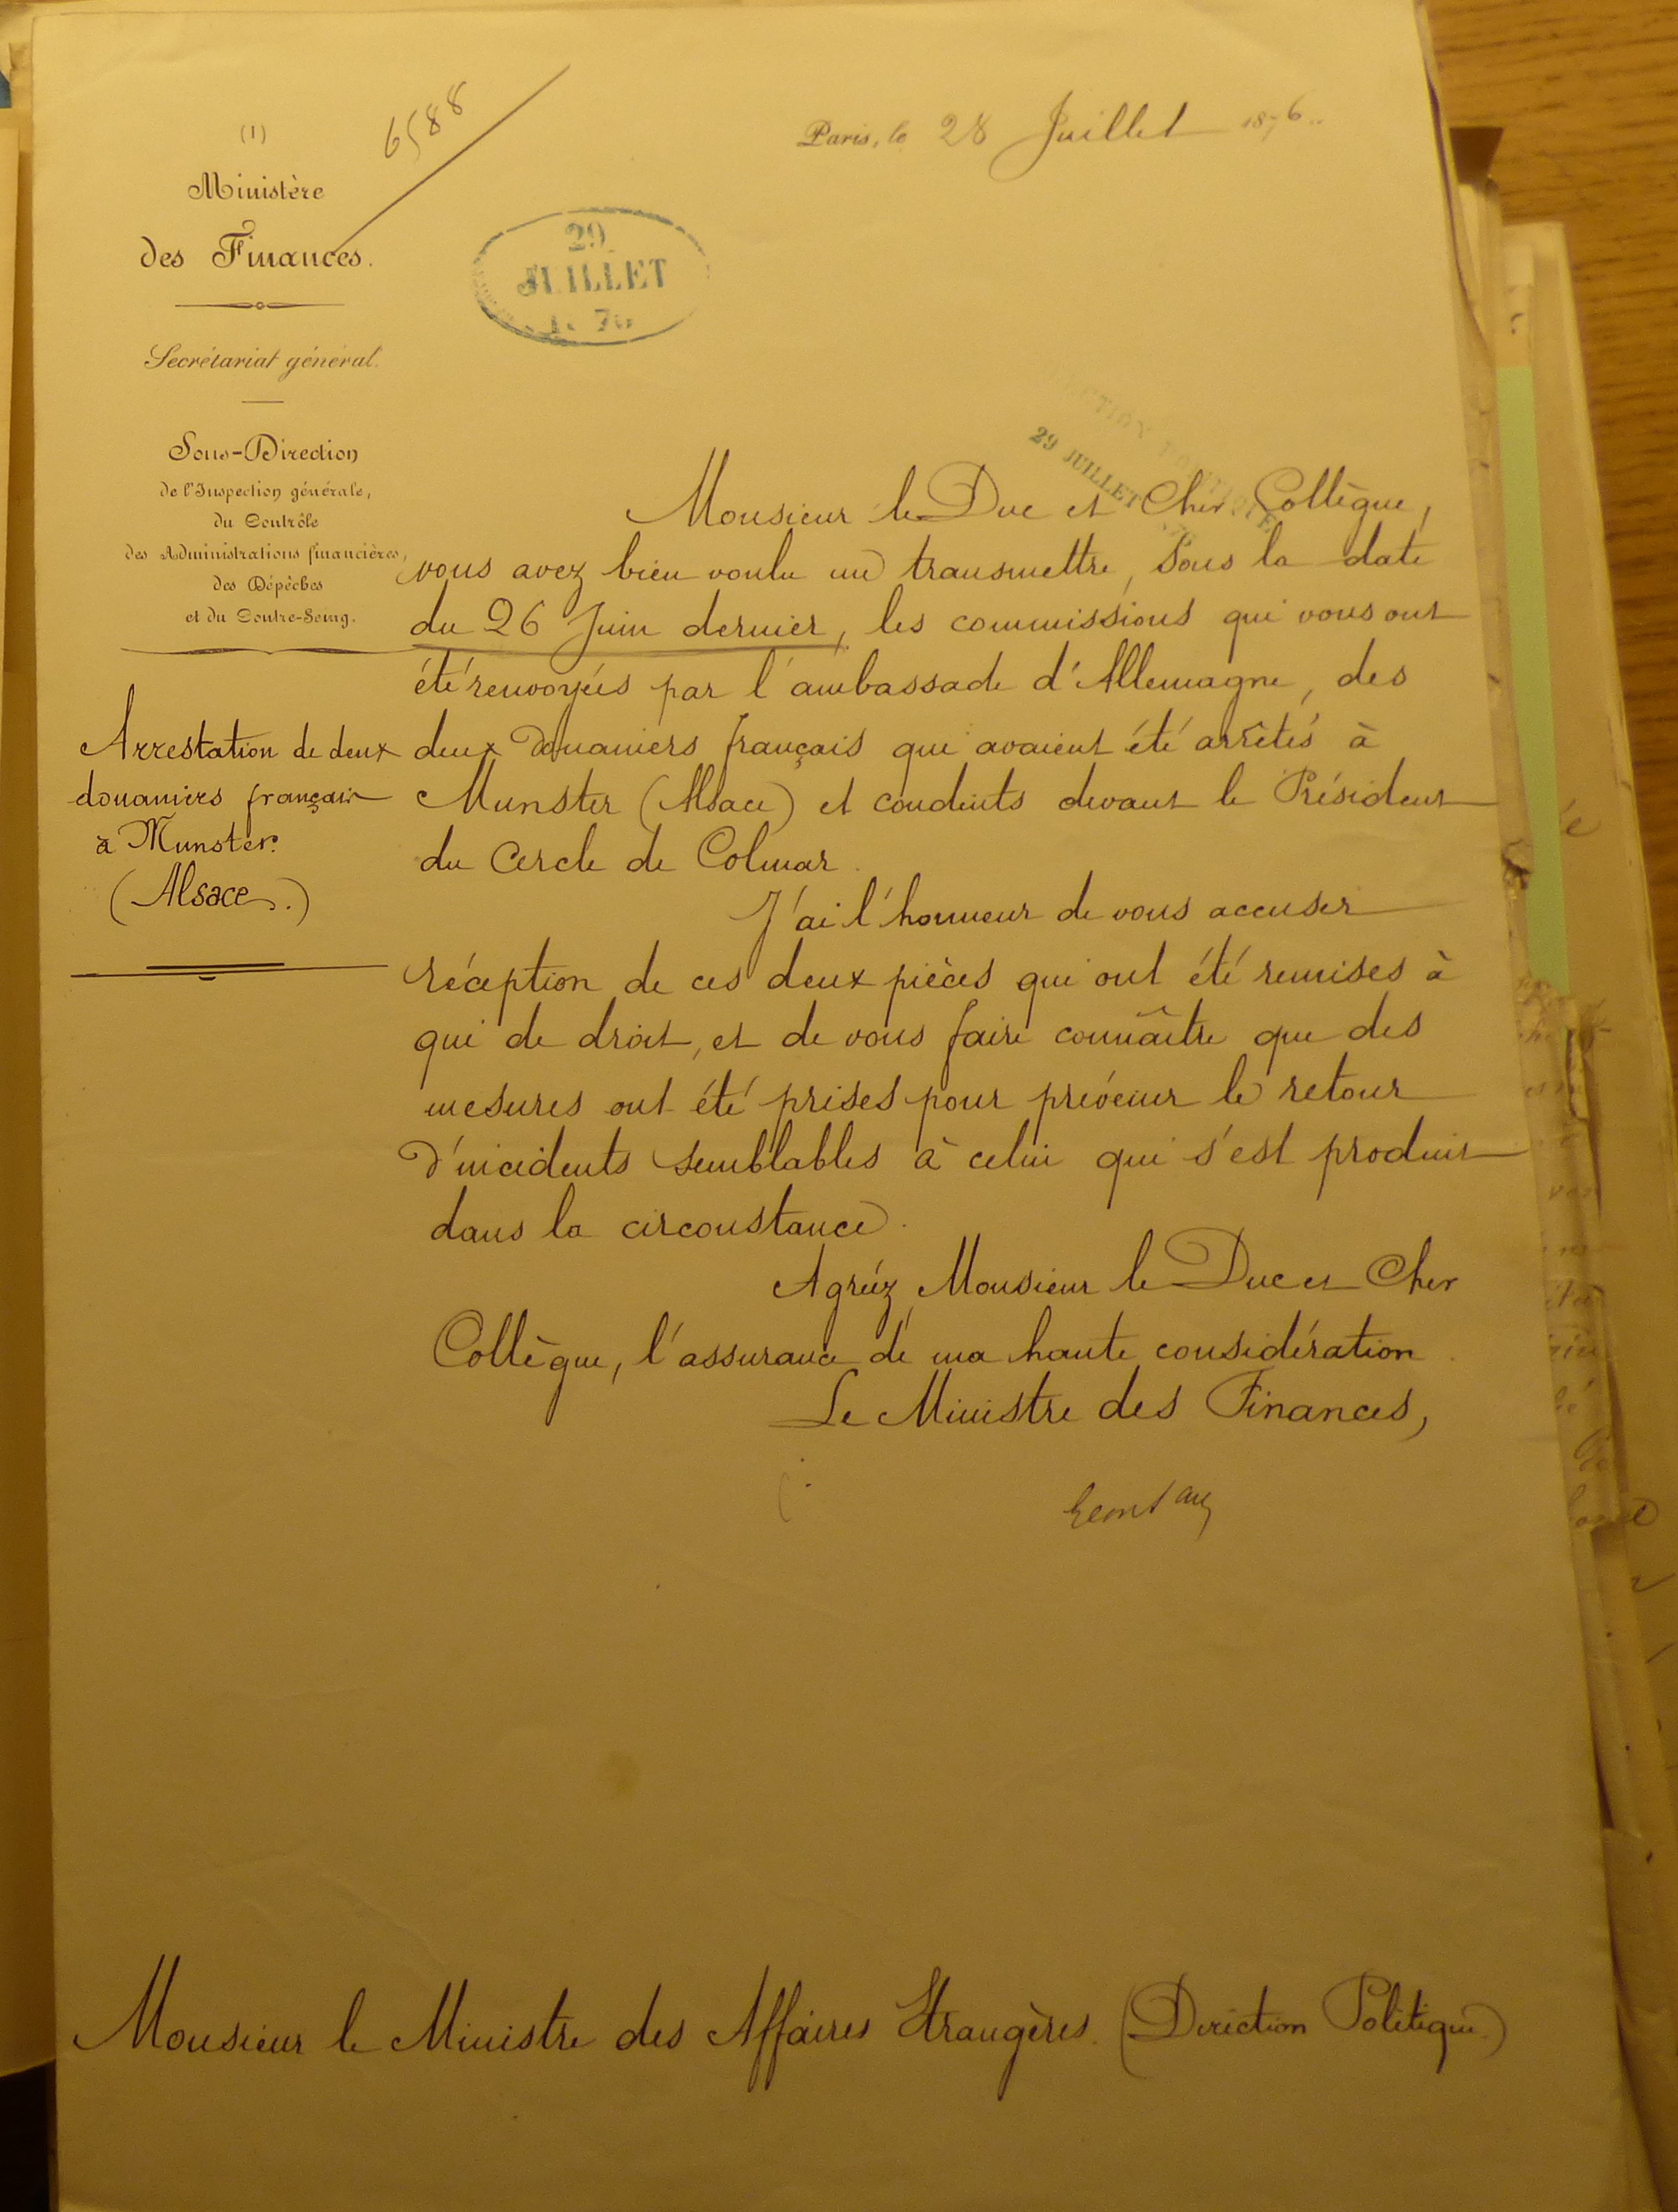 (1)
6588
Ministère
des Finances.
Secrétariat général.
Sous-Direction
de l'Inspection générale,
du Contrôle
des Administrations financières,
des Dépêches
et du Contre-Seing.
Arrestation de deux
douaniers français
à Munster.
(Alsace.)
Paris, le 28 Juillet 1876.
29
JUILLET
29 JUILLET
Monsieur le Duc et Cher Collègue,
vous avez bien voulu me transmettre, sous la date
du 26 Juin dernier, les commissions qui vous ont
été renvoyées par l'ambassade d'Allemagne, des
deux douaniers français qui avaient été arrêtés à
Munster (Alsace) et conduits devant le Président
du Cercle de Colmar.
J'ai l'honneur de vous accuser
réception de ces deux pièces qui ont été remises à
qui de droit, et de vous faire connaître que des
mesures ont été prises pour prévenir le retour
d'incidents semblables à celui qui s'est produit
dans la circonstance.
Agréez, Monsieur le Duc et Cher
Collègue, l'assurance de ma haute considération.
Le Ministre des Finances,
Monsieur le Ministre des Affaires Etrangères. (Direction Politique)